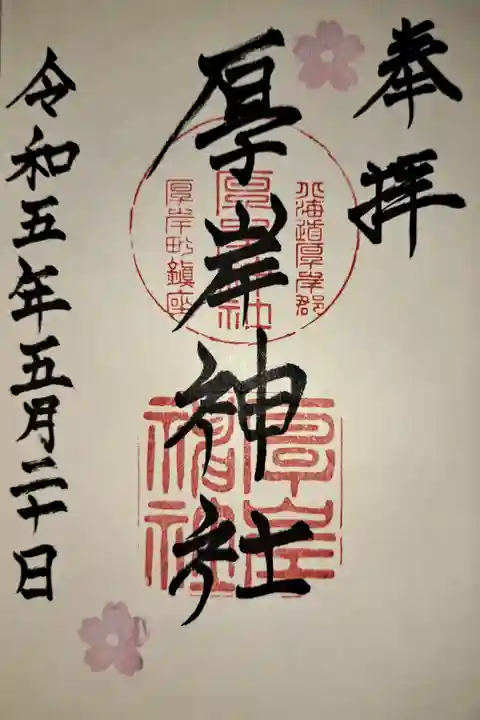 奉拝
北海道厚岸郡
厚岸神社
厚岸町鎮座
厚岸神社
令和五年五月二十日